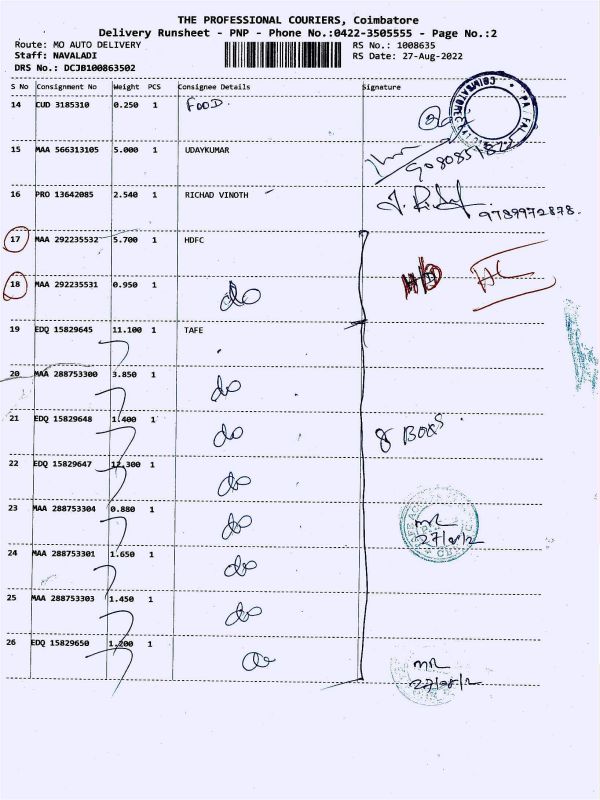 THE PROFESSIONAL COURIERS, Coimbatore
Delivery Runsheet - PNP - Phone No.:0422-3505555 - Page No.:2
Route: MO AUTO DELIVERY RS No.: 1008635
Staff: NAVALADI RS Date: 27-Aug-2022
DRS No.: DCJB100863502
S No Consignment No Weight PCS Consignee Details Signature
14 CUD 3185310 0.250 1 FOOD.
15 MAA 566313105 5.000 1 UDAYKUMAR
16 PRO 13642085 2.540 1 RICHAD VINOTH
9789972878.
17 MAA 292235532 5.700 1 HDFC
18 MAA 292235531 0.950 1 do
19 EDQ 15829645 11.100 1 TAFE
20 MAA 288753300 3.850 1 do
21 EDQ 15829648 1.400 1 do 8 BOXS
22 EDQ 15829647 12.300 1 do
23 MAA 288753304 0.880 1 do
24 MAA 288753301 1.650 1 do
25 MAA 288753303 1.450 1 do
26 EDQ 15829650 1.200 1 do